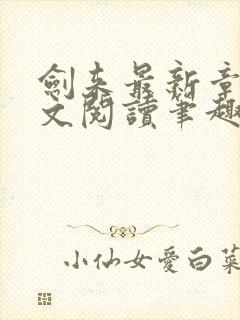 劍来最新章
文閱讀筆趣
小仙女愛白菜